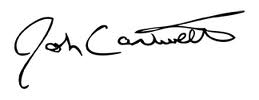 Josh Cantwell